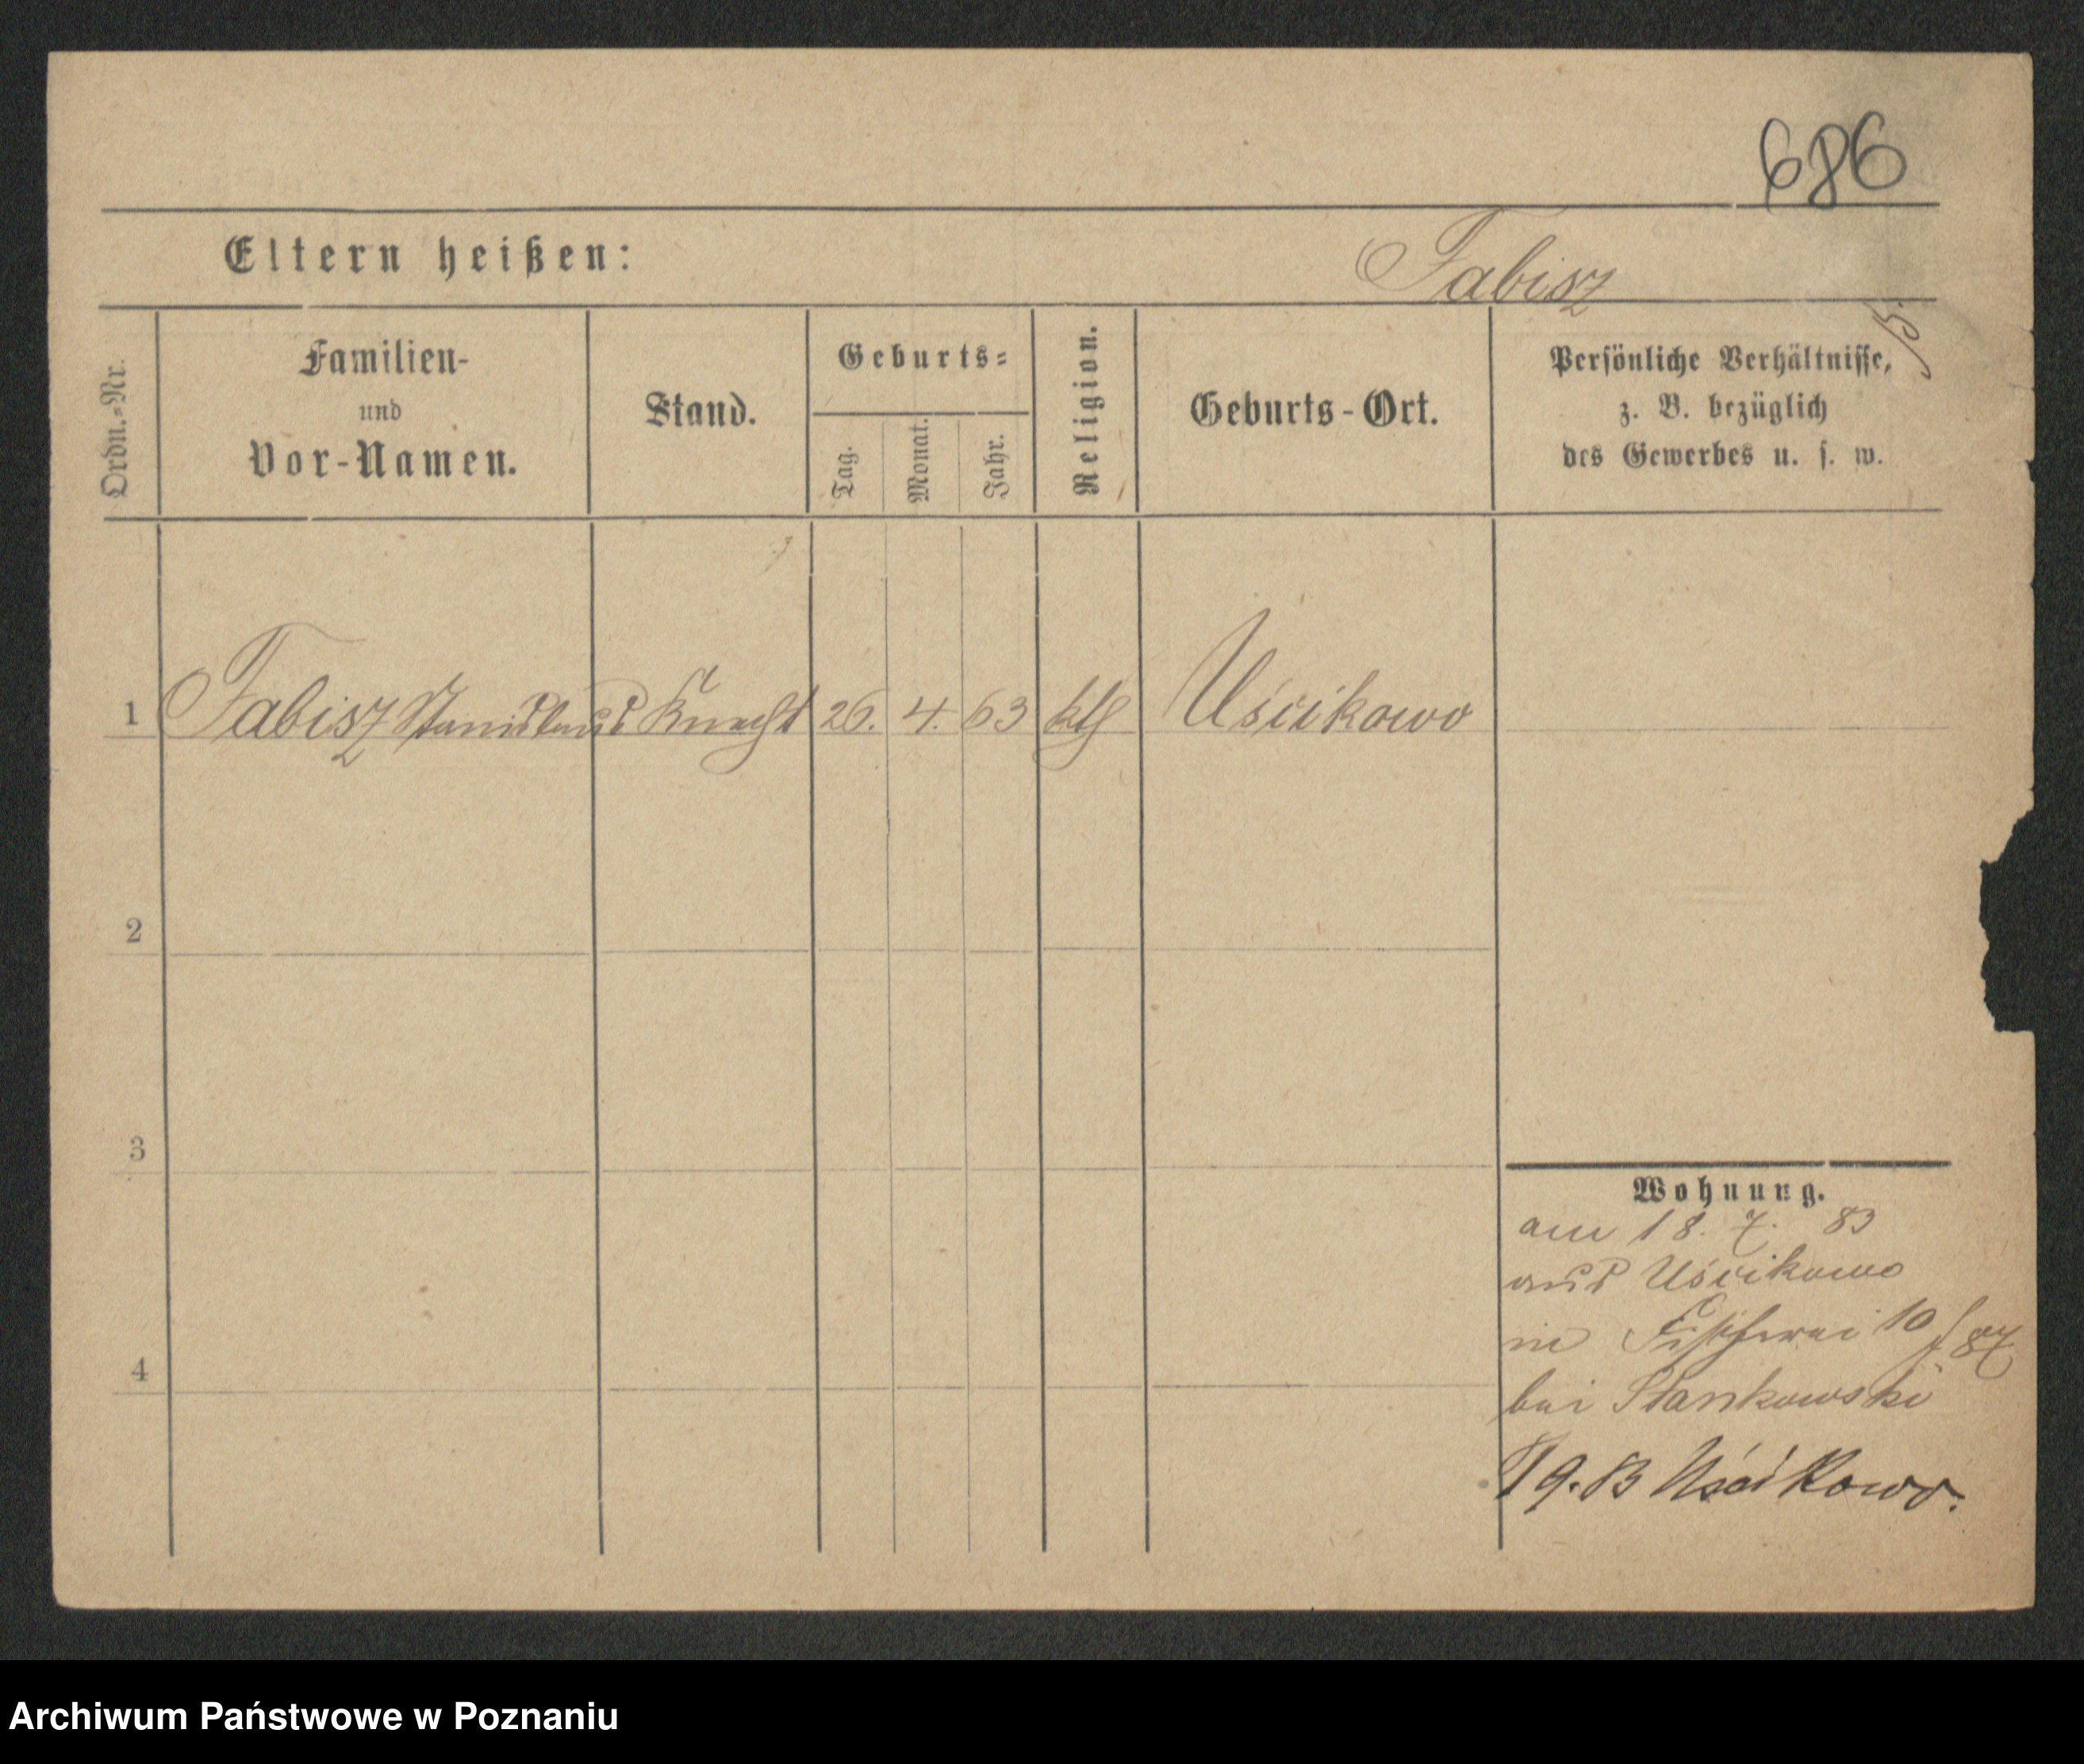 686
Eltern heißen:
Fabisz
15.
Ordn.-Nr.
Familien-
und
Vor-Namen.
Stand.
Geburts-
Tag.
Monat.
Jahr.
Religion.
Geburts-Ort.
Persönliche Verhältnisse,
z. B. bezüglich
des Gewerbes u. s. w.
1 Fabisz Stanislaus Knecht 26. 4. 63 kth Uścikowo
2
3
4
Wohnung.
am 18. 7. 83
aus Uścikowo
in Fischerei 10
bei Stankowski
9.83 Uścikowo.
Archiwum Państwowe w Poznaniu